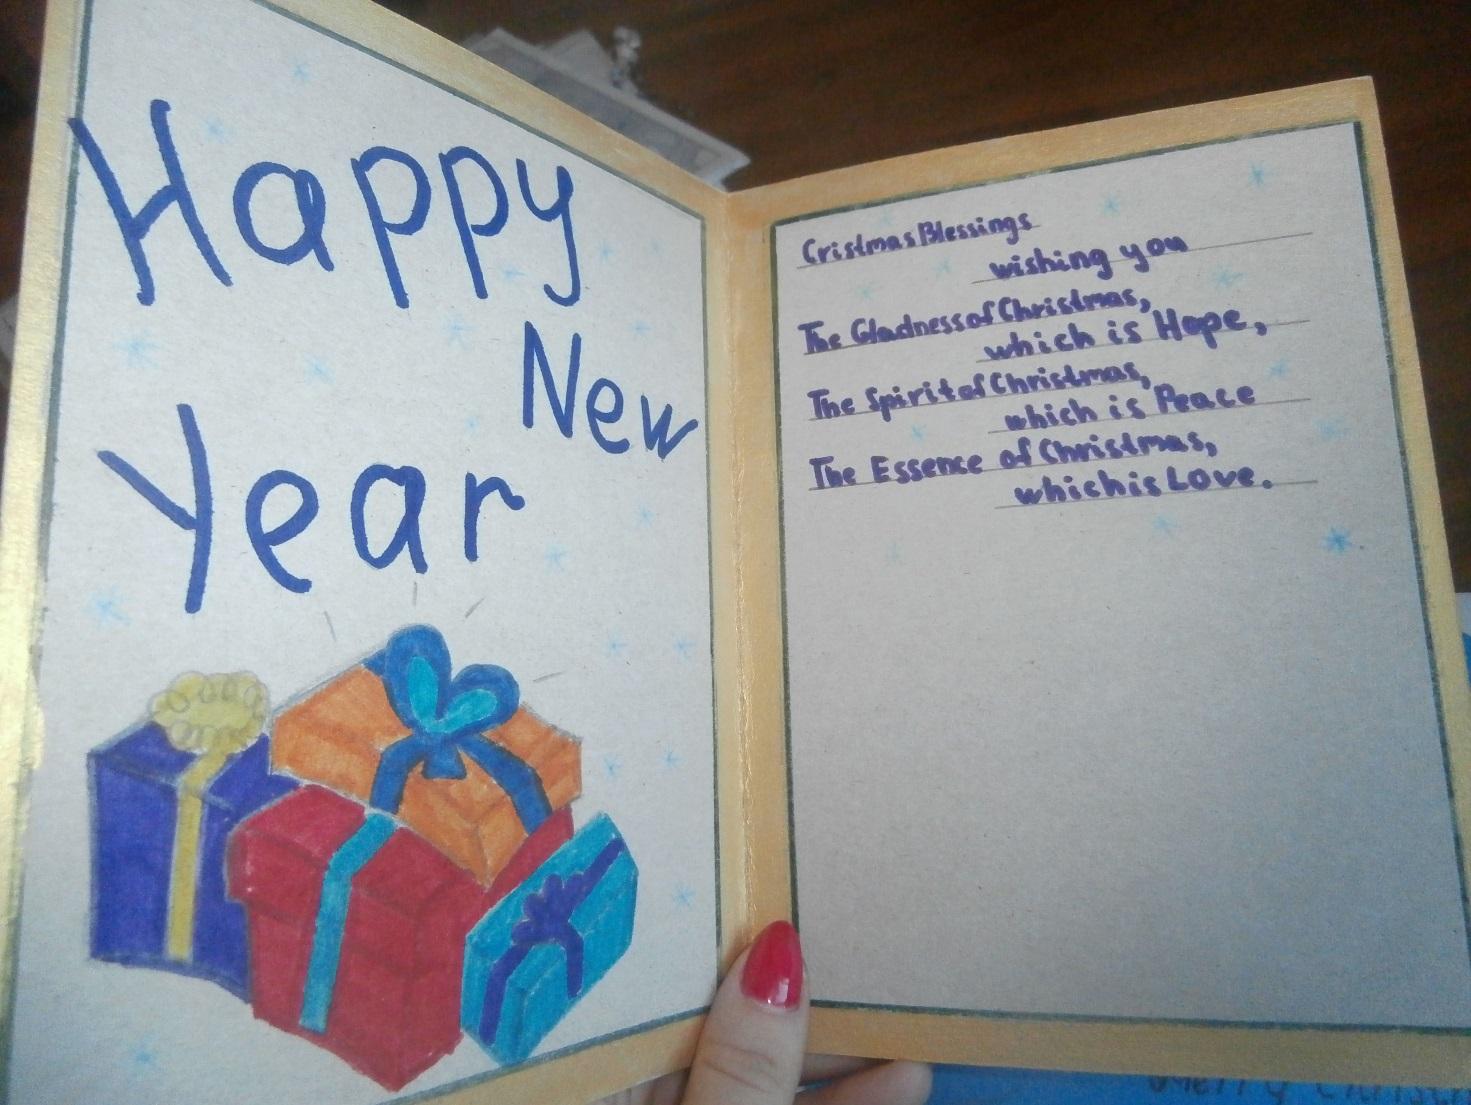 Happy
New
Year
Cristmas Blessings
wishing you
The Gladness of Christmas,
which is Hope,
The Spirit of Christmas,
which is Peace
The Essence of Christmas,
which is Love.
Merry